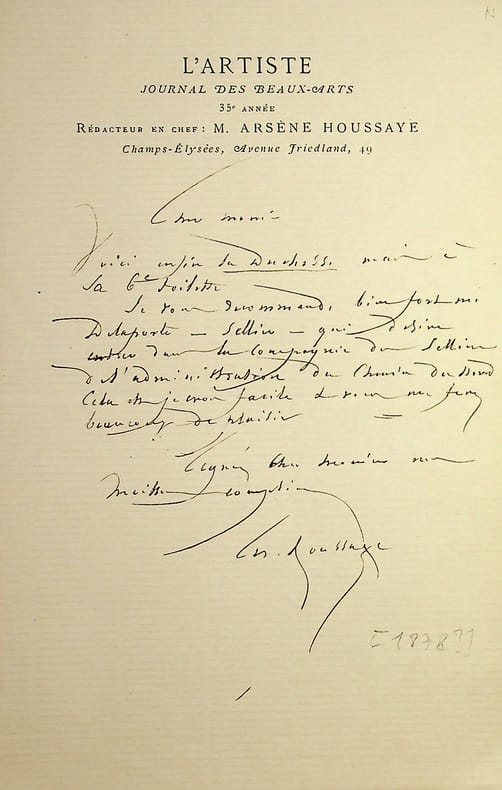 L'ARTISTE
JOURNAL DES BEAUX-ARTS
35e ANNÉE
RÉDACTEUR EN CHEF: M. ARSÈNE HOUSSAYE
Champs-Élysées, Avenue Friedland, 49
Cher
Voici enfin la Duchesse mais à
sa 6e toilette
Je vous recommande bien fort M.
Delaporte — Sellier — qui désire
entrer dans la Compagnie du Sellier
de l'administration du Chemin du Nord
Cela est je crois facile & vous me ferez
beaucoup de plaisir
Agréez Cher mes
meilleurs compliments
Ar. Houssaye
[1878?]